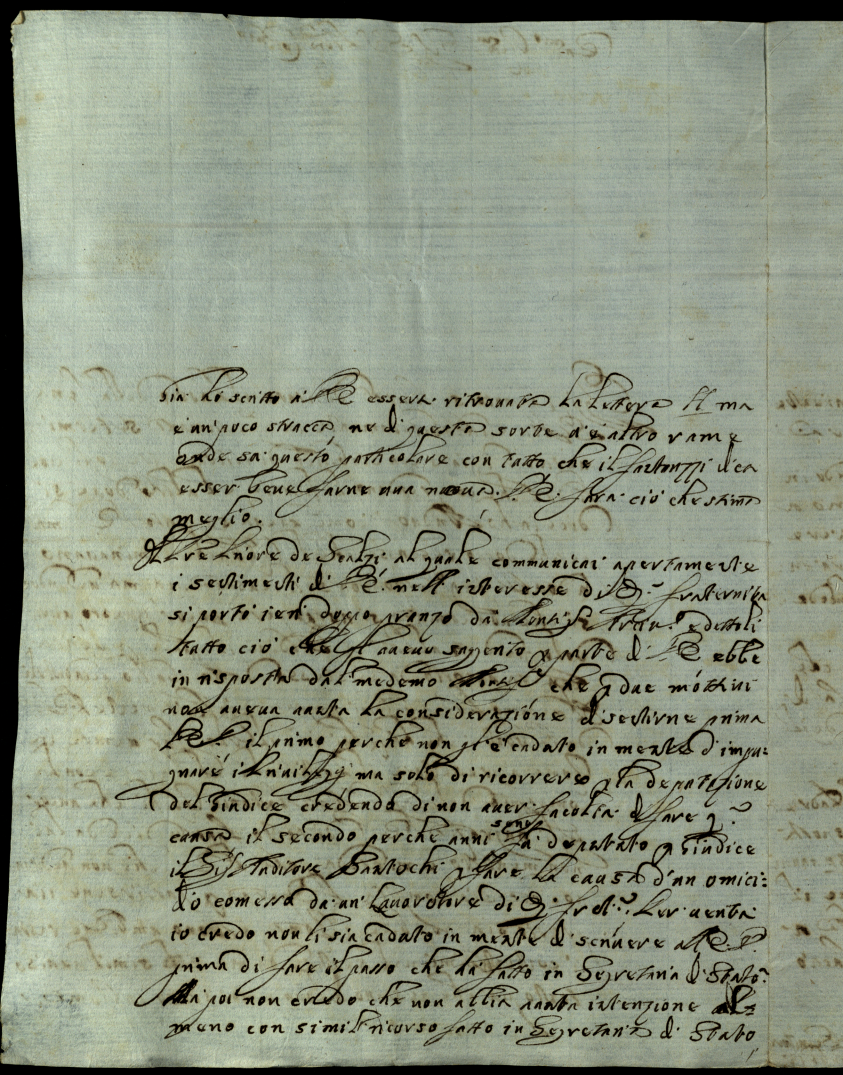 Già hò scritto à VE essersi ritrovata la lettera ma
è un poco stracca ne di questa sorte v'è altro rame
onde sà questo particolare con tutto che il dica
esser bene farne una nuova. VE. farà ciò che stima
meglio.
Il Priore de Scalzi al quale communicai apertamente
i sentimenti di VE. nell' interesse di q. fraternita
si portò ieri doppo pranzo da e dettoli
tutto ciò che aveva saputo p parte di VE ebbe
in risposta dal medemo che p due mottivi
non aveva avuta la considerazione di sentirne prima
il primo perche non gl'è caduto in mente d'impu:
gnare ma solo di ricorrere p la deputazione
del Giudice credendo di non aver facoltà di fare q.
causa il secondo perche anni sono fù deputato p Giudice
il Sig. Auditore p fare la causa d'un omici:
dio comesso da un Lavoratore di q. Frat. Per verità
io credo non li sia caduto in mente di scrivere all'
prima di fare il passo che hà fatto in Segretaria di Stato
Mà poi non credo che non abbia avuta intenzione
meno con simil ricorso fatto in Segretaria di Stato